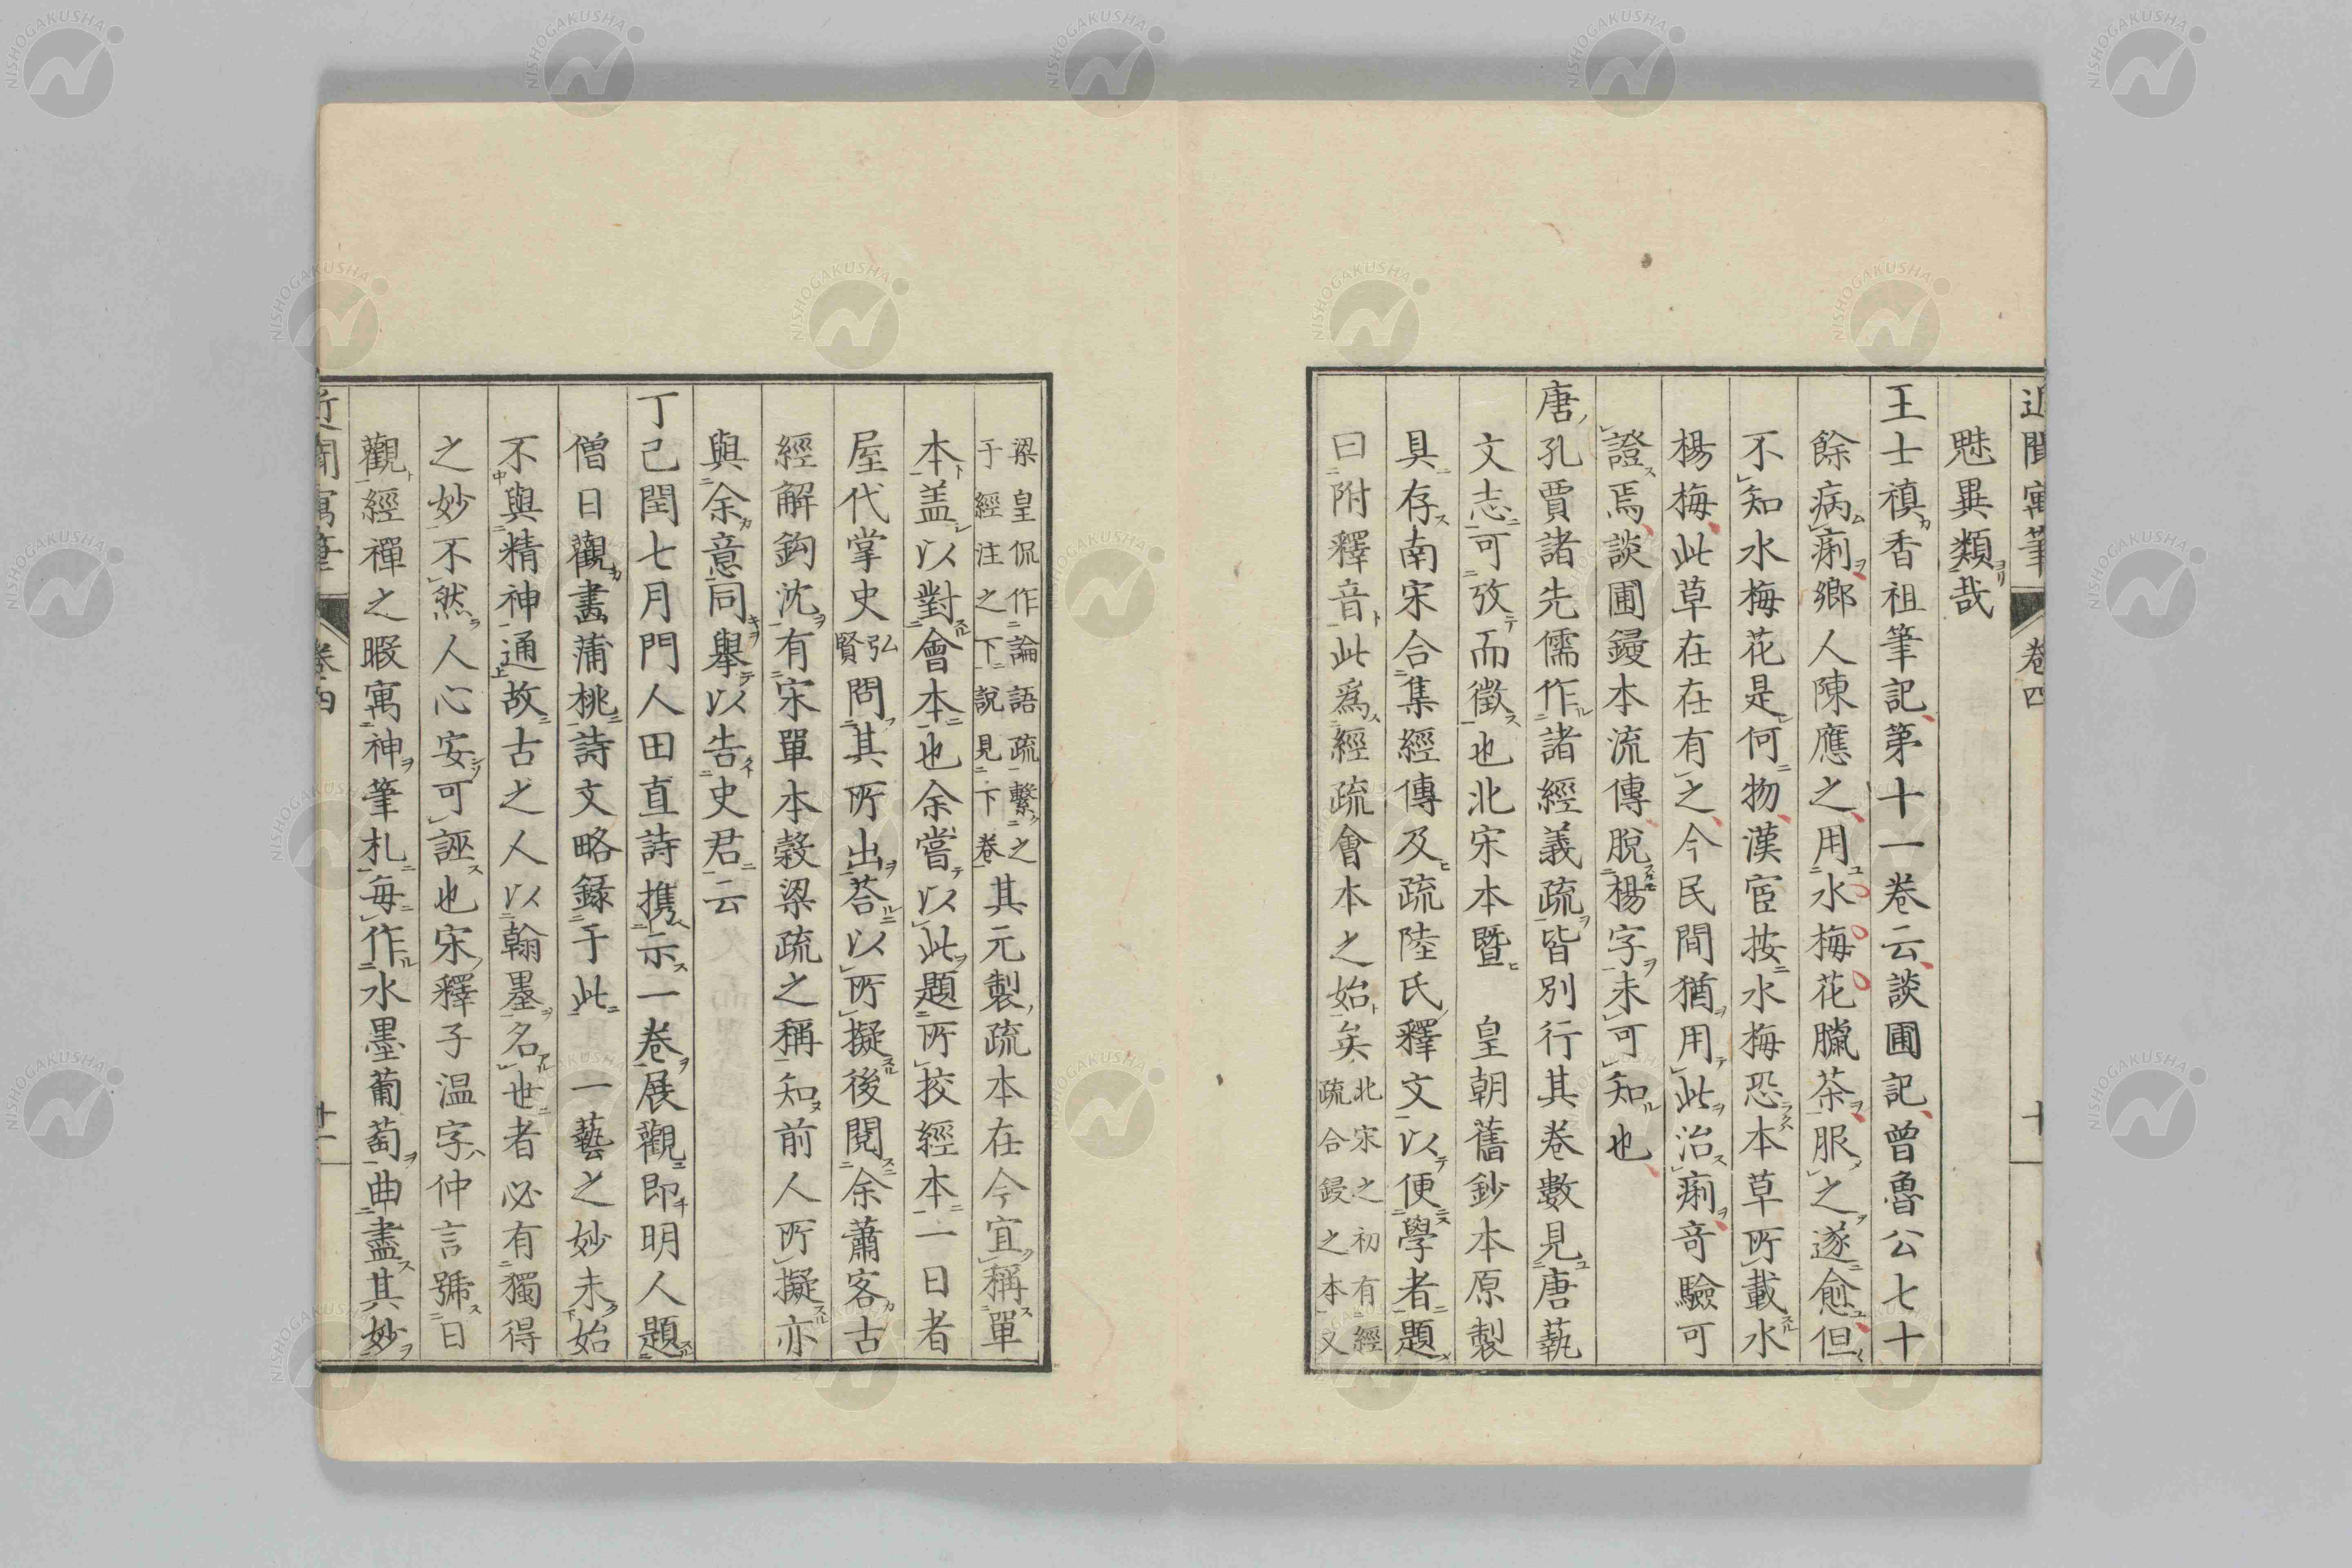 近聞寓筆 卷四 十
魁異類哉
王士禛香祖筆記第十一卷云談圃記曾魯公七十
餘病痢鄉人陳應之用水梅花臘茶服之遂愈但
不知水梅花是何物漢宦按水梅恐本草所載水
楊梅此草在在有之今民間猶用此治痢奇驗可
證焉談圃鋟本流傳脫楊字未可知也
唐孔賈諸先儒作諸經義疏皆別行其卷數見唐藝
文志可攷而徵也北宋本曁　皇朝舊鈔本原製
具存南宋合集經傳及疏陸氏釋文以便學者題
曰附釋音此爲經疏會本之始矣北宋之初有經疏合鋟之本又
梁皇侃作論語疏繫之于經注之下說見下卷其元製疏本在今宜稱單
本盖以對會本也余嘗以此題所挍經本一日者
屋代掌史弘賢問其所出荅以所擬後閱余蕭客古
經解鈎沈有宋單本穀梁疏之稱知前人所擬亦
與余意同舉以告史君云
丁巳閏七月門人田直詩携示一卷展觀即明人題
僧日觀畫蒲桃詩文略録于此　一藝之妙未始
不與精神通故古之人以翰墨名世者必有獨得
之妙不然人心安可誣也宋釋子温字仲言號日
觀經禪之暇寓神筆札每作水墨葡萄曲盡其妙
近聞寓筆 卷四 十一
NISHOGAKUSHA